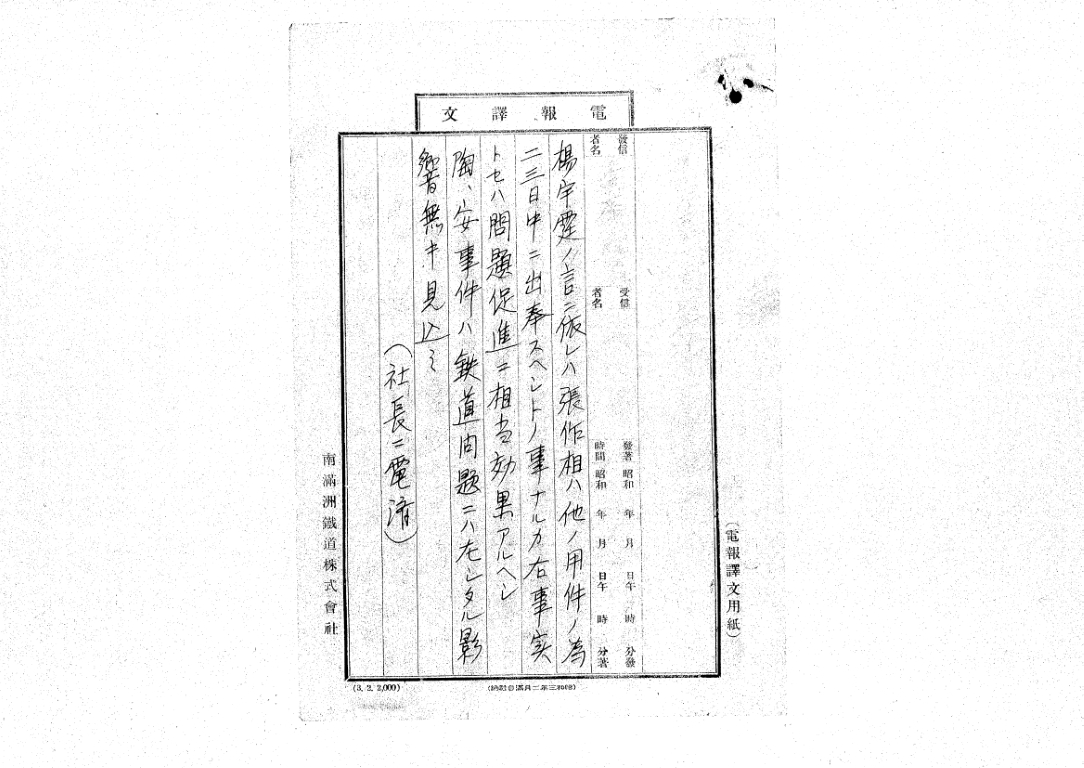 電報譯文
(電報譯文用紙)
發信者名
受信者名
發著時間
昭和 年 月 日午 時 分發
昭和 年 月 日午 時 分著
楊宇霆ノ言ニ依レハ張作相ハ他ノ用件ノ為
二三日中ニ出奉スヘシトノ事ナルカ右事実
トセハ問題促進ニ相当効果アルヘシ
陶、安事件ハ鉄道問題ニハ左シタル影
響無キ見込ミ
(社長ニ電済)
南滿洲鐵道株式會社
(3. 2. 2,000)